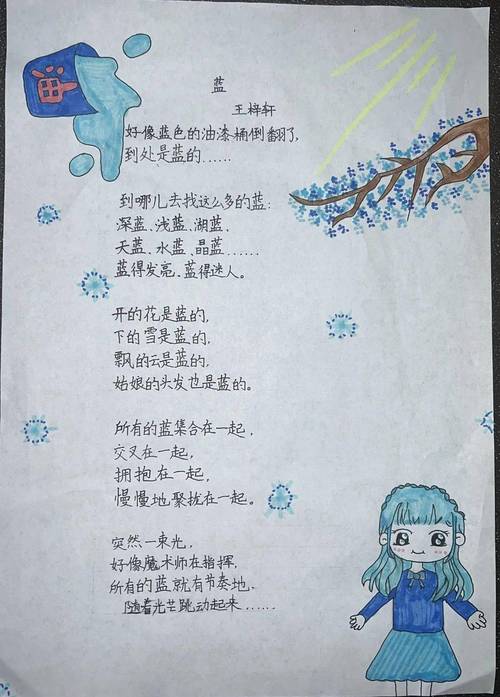 油
蓝
王梓轩
好像蓝色的油漆桶倒翻了,
到处是蓝的……
到哪儿去找这么多的蓝:
深蓝、浅蓝、湖蓝、
天蓝、水蓝、晶蓝……
蓝得发亮、蓝得迷人。
开的花是蓝的,
下的雪是蓝的,
飘的云是蓝的,
姑娘的头发也是蓝的。
所有的蓝集合在一起,
交叉在一起,
拥抱在一起,
慢慢地聚拢在一起。
突然一束光,
好像魔术师在指挥,
所有的蓝就有节奏地
随着光芒跳动起来……